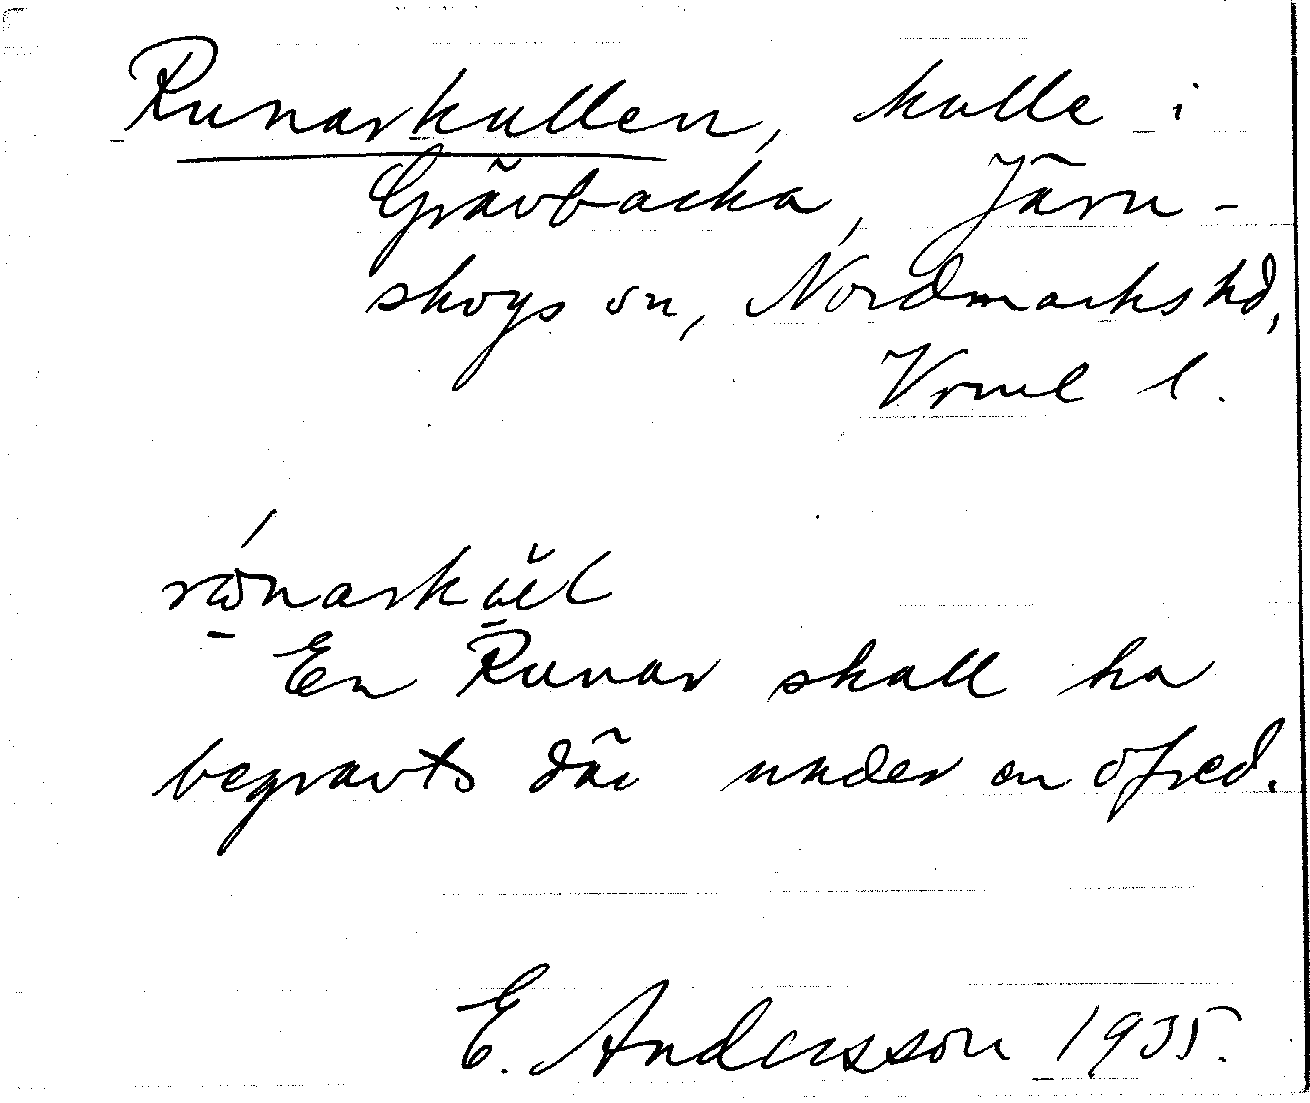 Runarkullen, kulle i
Grävbacka, Järn-
skogs sn, Nordmarks hd,
Vrml l.
En Runar skall ha
begravts där under en ofred.
E. Andersson 1935.